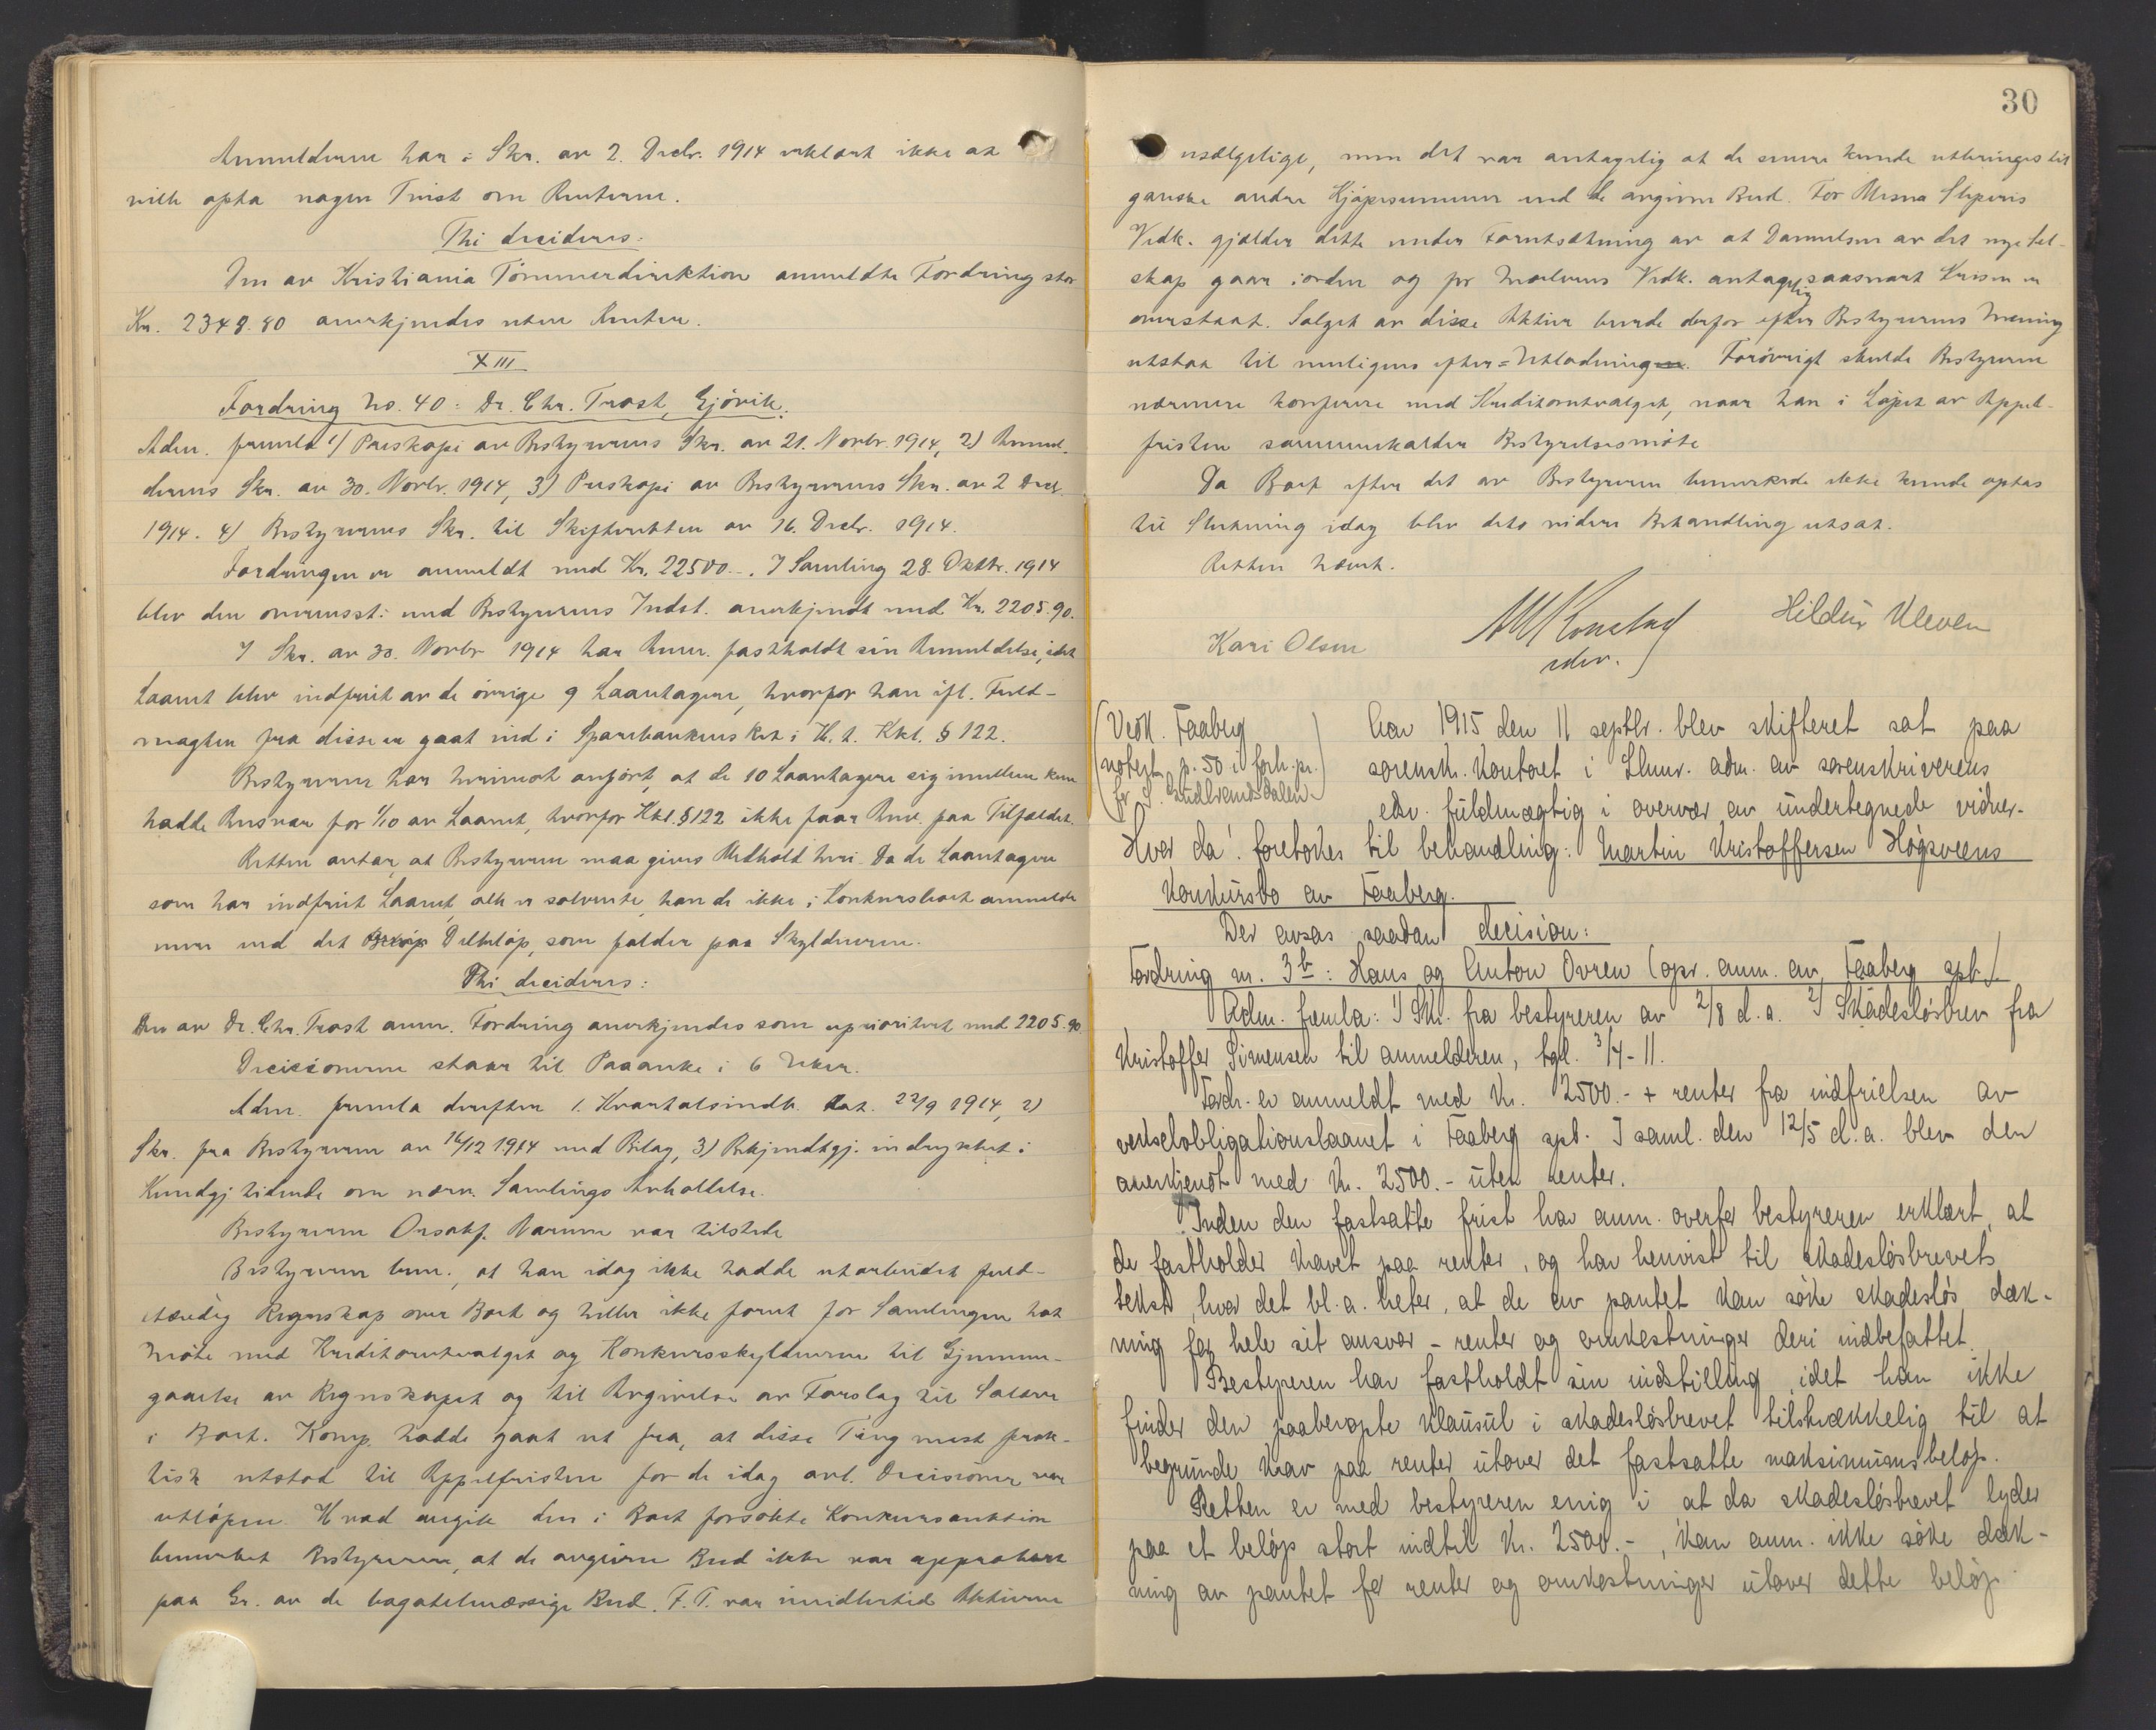 Anmelderne har i Skr. av 2. Decbr. 1914 erklært ikke at
ville opta nogen Tvist om Renterne.
Thi decideres:
Den av Kristiania Tømmerdirektion anmeldte Fordring stor
Kr. 2348.80 anerkjendes uten Renter.
XIII
Fordring No. 40: Dr. Chr. Trost, Gjøvik.
Adm. fremla 1) Preskopi av Bestyrerens Skr. av 21. Novbr. 1914, 2) Anmel-
derens Skr. av 30. Novbr. 1914, 3) Preskopi av Bestyrerens Skr. av 2 Decb.
1914. 4) Bestyrerens Skr. til Skifteretten av 16. Decbr. 1914.
Fordringen er anmeldt med Kr. 22500.-. I Samling 28. Oktbr. 1914
blev den overensst. med Bestyrerens Indst. anerkjendt med Kr. 2205.90.
I Skr. av 30. Novbr 1914 har Anm. fastholdt sin Anmeldelse, idet
Laanet blev indfriet av de øvrige 9 Laantagere, hvorfor han ifl. Fuld-
magten fra disse er gaat ind i Sparebankens Ret i H. t. Kkl. § 122.
Bestyreren har herimot anført, at de 10 Laantagere sig imellem kun
hadde Ansvar for 1/10 av Laanet, hvorfor Kkl. § 122 ikke faar Anv. paa Tilfældet.
Retten antar, at Bestyreren maa gives Medhold heri. Da de Laantagere
som har indfriet Laanet, alle er solvente, kan de ikke i Konkursboet anmelde
mer end det Beløp Delbeløp, som falder paa Skyldneren.
Thi decideres:
Den av Dr. Chr. Trost anm. Fordring anerkjendes som uprioritert med 2205.90.
Decisionerne staar til Paaanke i 6 Uker.
Adm. fremla derefter 1. Kvartalsindb. dat. 22/9 1914, 2)
Skr. fra Bestyreren av 16/12 1914 med Bilag, 3) Bekjendtgj. indrykket i
Kundgj tidende om nærv. Samlings Avholdelse.
Bestyreren Onsakf. Narum var tilstede
Bestyreren bem., at han idag ikke hadde utarbeidet fuld-
stændig Regnskap over Boet og heller ikke forut for Samlingen hat
Møte med Kreditorutvalget og Konkursskyldneren til Gjennem-
gaaelse av Regnskapet og til Avgivelse av Forslag til Salær
i Boet. Komp. hadde gaat ut fra, at disse Ting mest prak-
tisk utstod til Appelfristen for de idag avl. Decisioner var
utløpen. Hvad angik den i Boet forsøkte Konkursauktion
bemerket Bestyreren, at de avgivne Bud ikke var approbert
paa Gr. av de bagatelmæssige Bud. F. T. var imidlertid Aktierne
30
usælgelige, men det var antagelig at de senere kunde utbringes til
ganske andre Kjøpesummer end de avgivne Bud. For Mesna Sliperis
Vedk. gjælder dette under Forutsætning av at Dannelsen av det nye Sel-
skap gaar iorden og for Mælums Vedk. antagelig saasnart Krisen er
overstaat. Salget av disse Aktier burde derfor efter Bestyrerens Mening
utstaa til muligens efter=Utlodningen. Forøvrigt skulde Bestyreren
nærmere konferere med Kreditorutvalget, naar han i Løpet av Appel-
fristen sammenkalder Bestyrelsesmøte
Da Boet efter det av Bestyreren bemerkede ikke kunde optas
til Slutning idag blev dets videre Behandling utsat.
Retten hævet.
Kari Olsen
edv.
Hildur Kleven
(Vedk. Faaberg
notert p. 50 i forh.pr.
for S. Gudbrandsdalen)
Aar 1915 den 11 septbr. blev skifteret sat paa
sorenskr. kontoret i Lhmr. adm. av sorenskriverens
edsv. fuldmægtig i overvær av undertegnede vidner.
Hvor da! foretokes til behandling: Martin Kristoffersen Høgsveens
konkursbo av Faaberg.
Der avsas saadan decision:
Fordring nr. 3b: Hans og Anton Ovren (opr. anm. av Faaberg spb.)
Adm. fremla: 1) Skr. fra bestyreren av 2/8 d.a. 2) Skadesløsbrev fra
Kristoffer Simensen til anmelderen, tgl. 3/4-11.
Fordr. er anmeldt med kr. 2500.- + renter fra indfrielsen av
vekselobligationslaanet i Faaberg spb. I saml. den 12/5 d.a. blev den
anerkjendt med kr. 2500.- uten renter.
Inden den fastsatte frist har anm. overfor bestyreren erklært, at
de fastholder kravet paa renter, og har henvist til skadesløsbrevets
tekst, hvor det bl.a. heter, at de av pantet kan søke skadesløs dæk-
ning for hele sit ansvar - renter og omkostninger deri indbefattet.
Bestyreren har fastholdt sin indstilling, idet han ikke
finder den paaberopte klausul i skadesløsbrevet tilstrækkelig til at
begrunde krav paa renter utover det fastsatte maksimumsbeløp.
Retten er med bestyreren enig i at da skadesløsbrevet lyder
paa et beløp stort indtil kr. 2500.-, kan anm. ikke søke dæk-
ning av pantet for renter og omkostninger utover dette beløp.